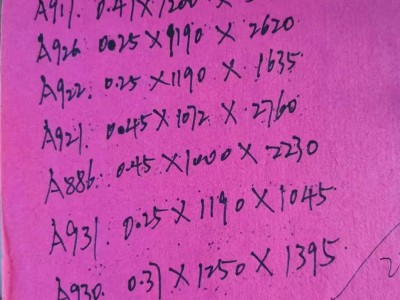 A917. 0.47×1200×
A926. 0.25×1190×2620
A922. 0.25×1190×1635
A921. 0.45×1072×2760
A886. 0.45×1000×2230
A931. 0.25×1190×1045
A930. 0.37×1250×1395